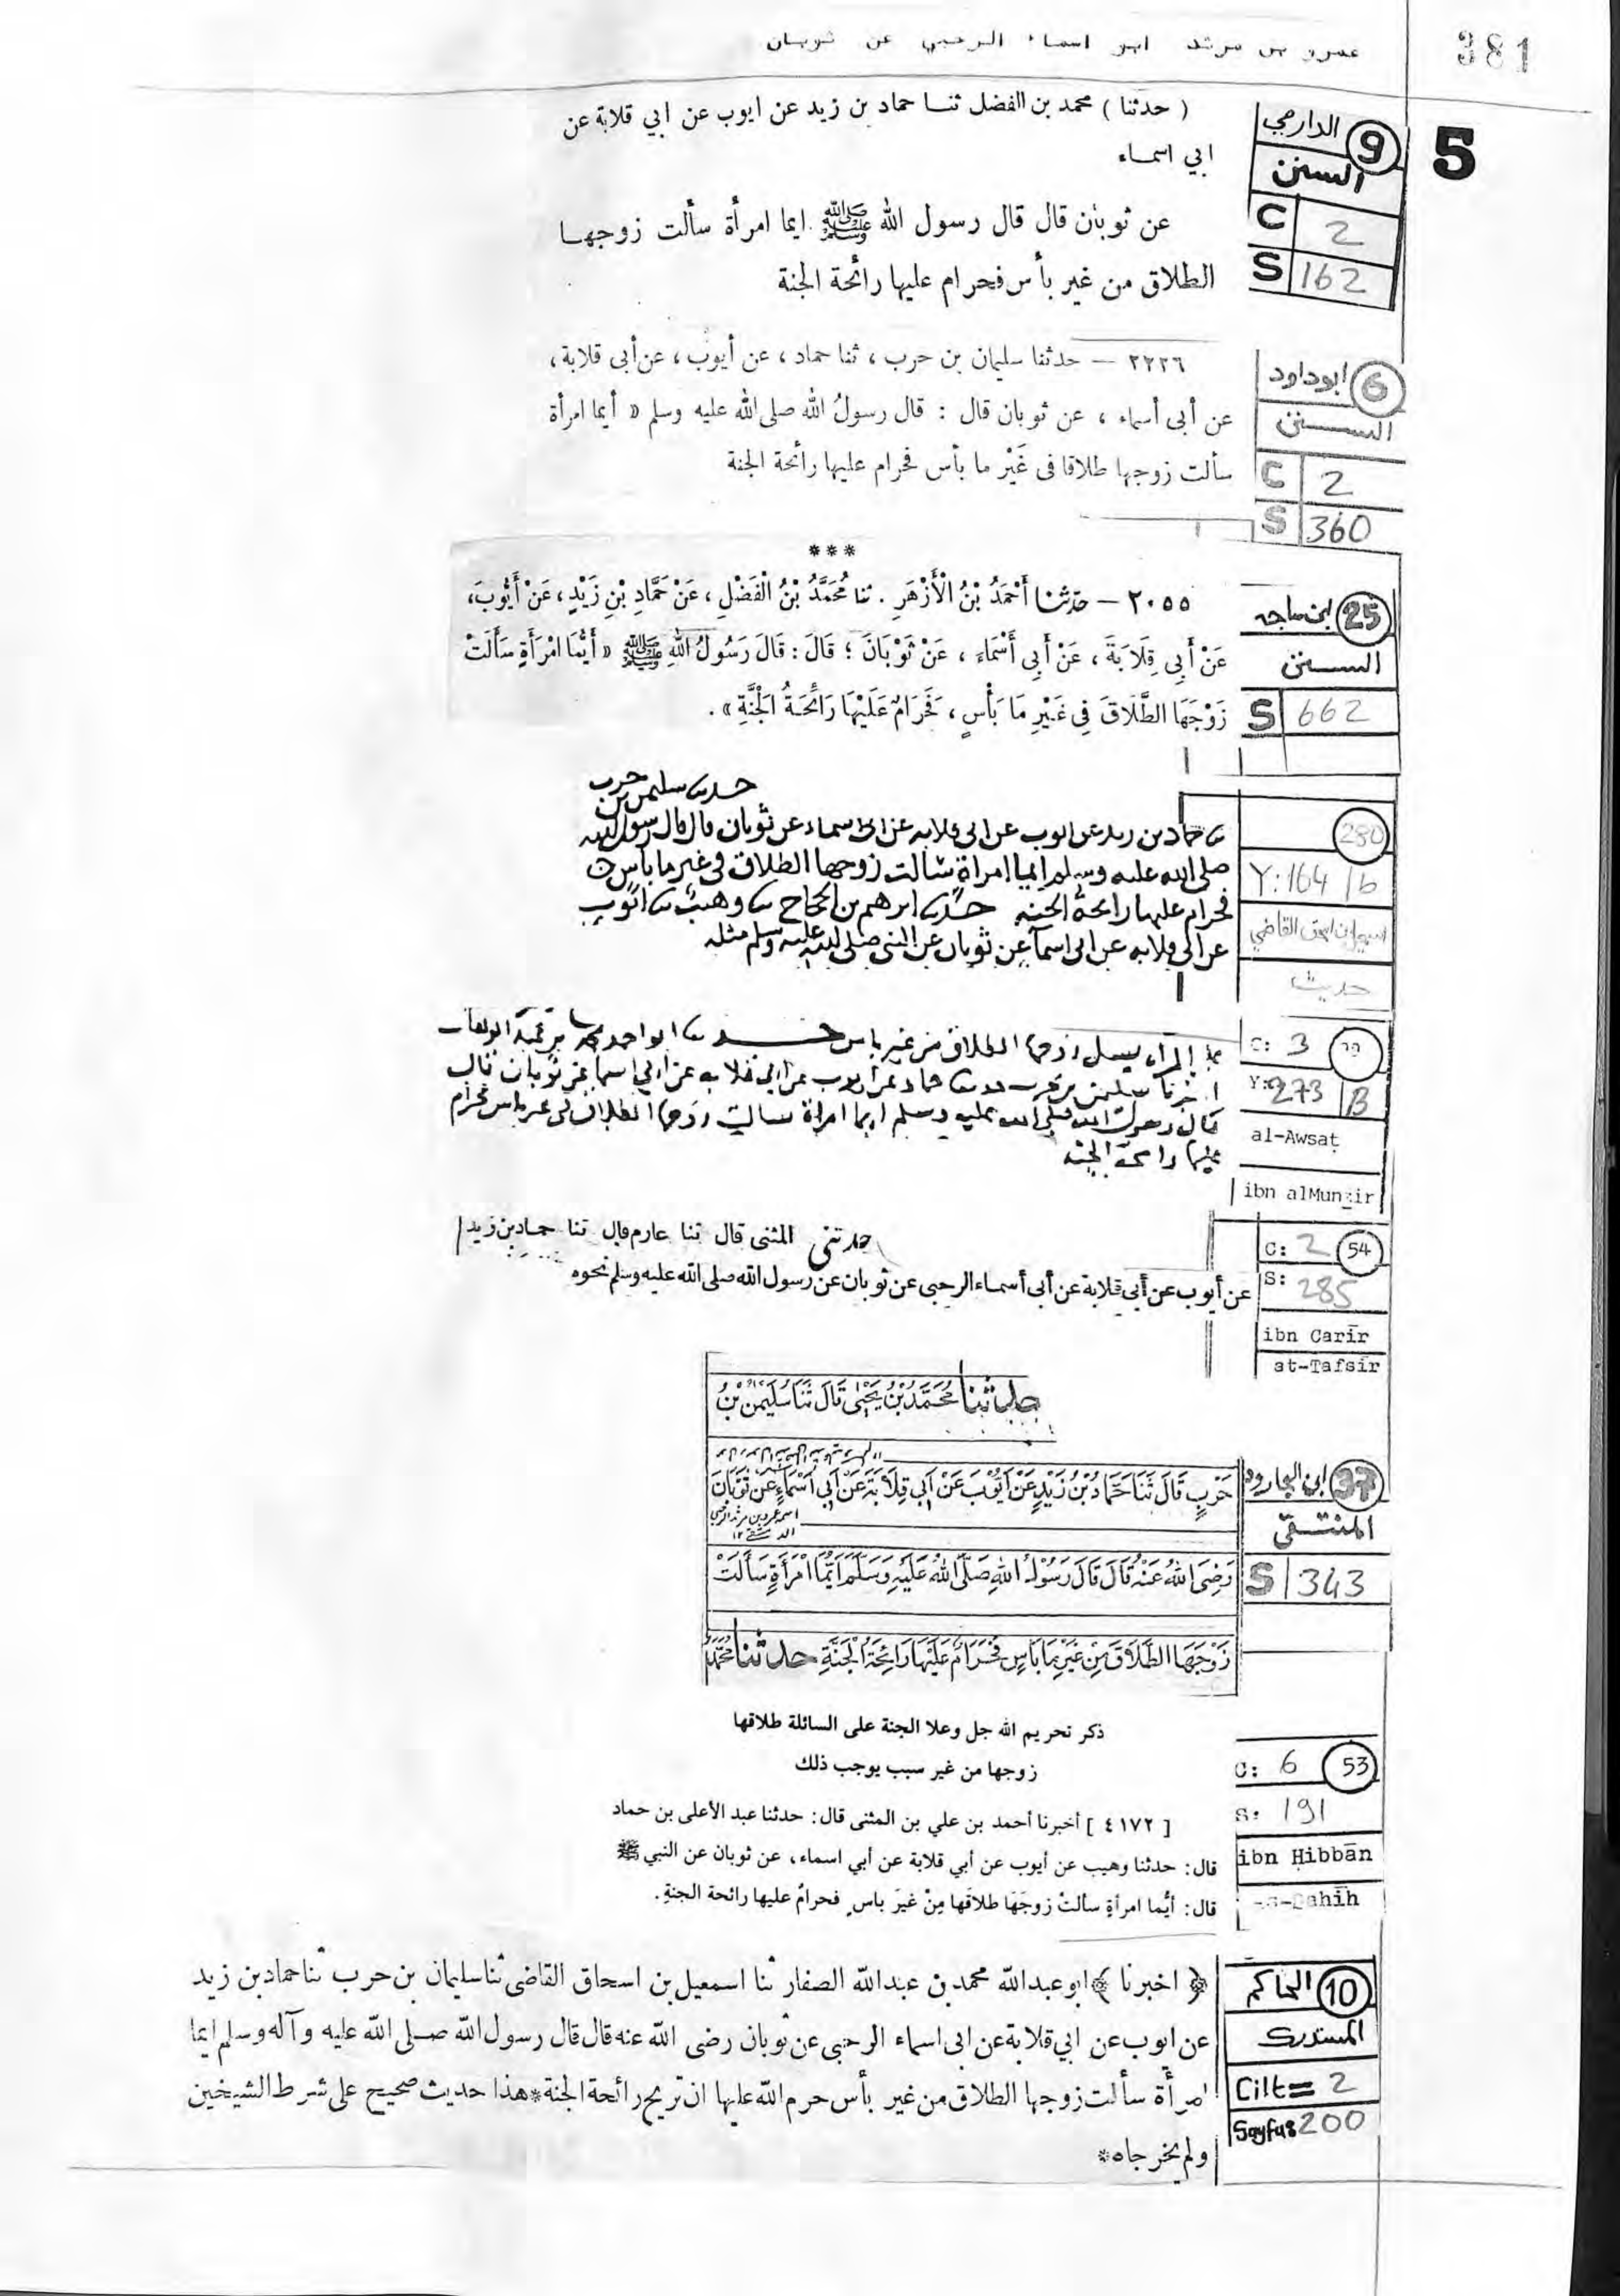 381
عمرو بن مرثد ابو اسماء الرحبي عن ثوبان
5
9 الدارمي
السنن
C 2
S 162
( حدثنا ) محمد بن الفضل ثنا حماد بن زيد عن ايوب عن ابي قلابة عن
ابي اسماء
عن ثوبان قال قال رسول الله ﷺ ايما امرأة سألت زوجها
الطلاق من غير بأس فحرام عليها رائحة الجنة
6 ابوداود
السنن
C 2
S 360
٢٢٢٦ – حدثنا سليمان بن حرب ، ثنا حماد ، عن أيوب ، عن أبى قلابة ،
عن أبى أسماء ، عن ثوبان قال : قال رسولُ الله صلى الله عليه وسلم « أيما امرأة
سألت زوجها طلاقا فى غَيْر ما بأس فحرام عليها رائحة الجنة
***
25 ابن ماجه
السنن
S 662
٢٠٥٥ – حدثنا أَحْمَدُ بْنُ الْأَزْهَرِ . ثنا مُحَمَّدُ بْنُ الْفَضْلِ ، عَنْ حَمَّادِ بْنِ زَيْدٍ ، عَنْ أَيُّوبَ ،
عَنْ أَبِي قِلَابَةَ ، عَنْ أَبِي أَسْمَاءَ ، عَنْ ثَوْبَانَ ؛ قَالَ : قَالَ رَسُولُ اللهِ ﷺ « أَيُّمَا امْرَأَةٍ سَأَلَتْ
زَوْجَهَا الطَّلَاقَ فِي غَيْرِ مَا بَأْسٍ ، فَحَرَامٌ عَلَيْهَا رَائِحَةُ الْجَنَّةِ » .
280
Y: 164 / b
اسمعيل بن اسحق القاضي
حديث
حدىا سليمن بن حرب
ىا حماد بن زيد عن ايوب عن ابى قلابه عن ابى اسماء عن ثوبان قال قال رسول الله
صلى الله عليه وسلم ايما امراة سالت زوجها الطلاق فى غير ما باس
فحرام عليها رائحة الجنه حدىا ابرهيم بن الحجاج ىا وهيب ىا ايوب
عن ابى قلابه عن ابى اسما عن ثوبان عن النبى صلى الله عليه وسلم مثله
C: 3
Y: 273 B
al-Awsaṭ
ibn alMunẕir
الطلاق من غير باس
سليمن بن حرب حماد عن ايوب عن ابي قلابه عن ابي اسما عن ثوبان قال
قال رسول الله صلى الله عليه وسلم ايما امراة سالت زوجها الطلاق فى غير باس فحرام
عليها رائحة الجنة
C: 2 54
S: 285
ibn Carīr
at-Tafsīr
حدثنى المثنى قال ثنا عارم قال ثنا حماد بن زيد
عن أيوب عن أبى قلابة عن أبى أسماء الرحبى عن ثوبان عن رسول الله صلى الله عليه وسلم نحوه
37 ابن الجارود
المنتقى
S 343
حدثنا مُحَمَّدُ بْنُ يَحْيٰى قَالَ ثَنَا سُلَيْمٰنُ بْنُ
حَرْبٍ قَالَ ثَنَا حَمَّادُ بْنُ زَيْدٍ عَنْ اَيُّوْبَ عَنْ اَبِي قِلَابَةَ عَنْ اَبِي اَسْمَاءٍ عَنْ ثَوْبَانَ
رَضِيَ اللهُ عَنْهُ قَالَ قَالَ رَسُوْلُ اللهِ صَلَّى اللهُ عَلَيْهِ وَسَلَّمَ اَيُّمَا امْرَأَةٍ سَأَلَتْ
زَوْجَهَا الطَّلَاقَ مِنْ غَيْرِ مَا بَاْسٍ فَحَرَامٌ عَلَيْهَا رَائِحَةُ الْجَنَّةِ حدثنا مُحَمَّدُ
ذكر تحريم الله جل وعلا الجنة على السائلة طلاقها
زوجها من غير سبب يوجب ذلك
C: 6 53
S: 191
ibn Ḥibbān
[ ٤١٧٢ ] أخبرنا أحمد بن علي بن المثنى قال: حدثنا عبد الأعلى بن حماد
قال: حدثنا وهيب عن أيوب عن أبي قلابة عن أبي اسماء، عن ثوبان عن النبي ﷺ
قال: أيُّما امرأةٍ سألتْ زوجَهَا طلاقَها مِنْ غيرَ باسٍ فحرامٌ عليها رائحة الجنةِ.
10 الحاكم
المستدرك
Cilt= 2
Sayfa: 200
﴿ اخبرنا ﴾ ابو عبدالله محمد بن عبدالله الصفار ثنا اسمعيل بن اسحاق القاضى ثنا سليمان بن حرب ثنا حماد بن زيد
عن ايوب عن ابي قلابة عن ابى اسماء الرحبى عن ثوبان رضى الله عنه قال قال رسول الله صلى الله عليه وآله وسلم ايما
امرأة سألت زوجها الطلاق من غير بأس حرم الله عليها ان تريح رائحة الجنة*هذا حديث صحيح على شرط الشيخين
ولم يخرجاه*